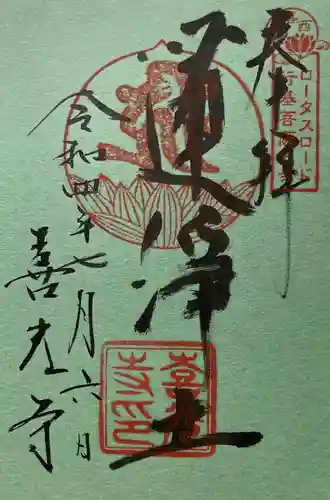 奉拝
ロータスロード
蓮浄土
令和四年七月六日
喜光寺